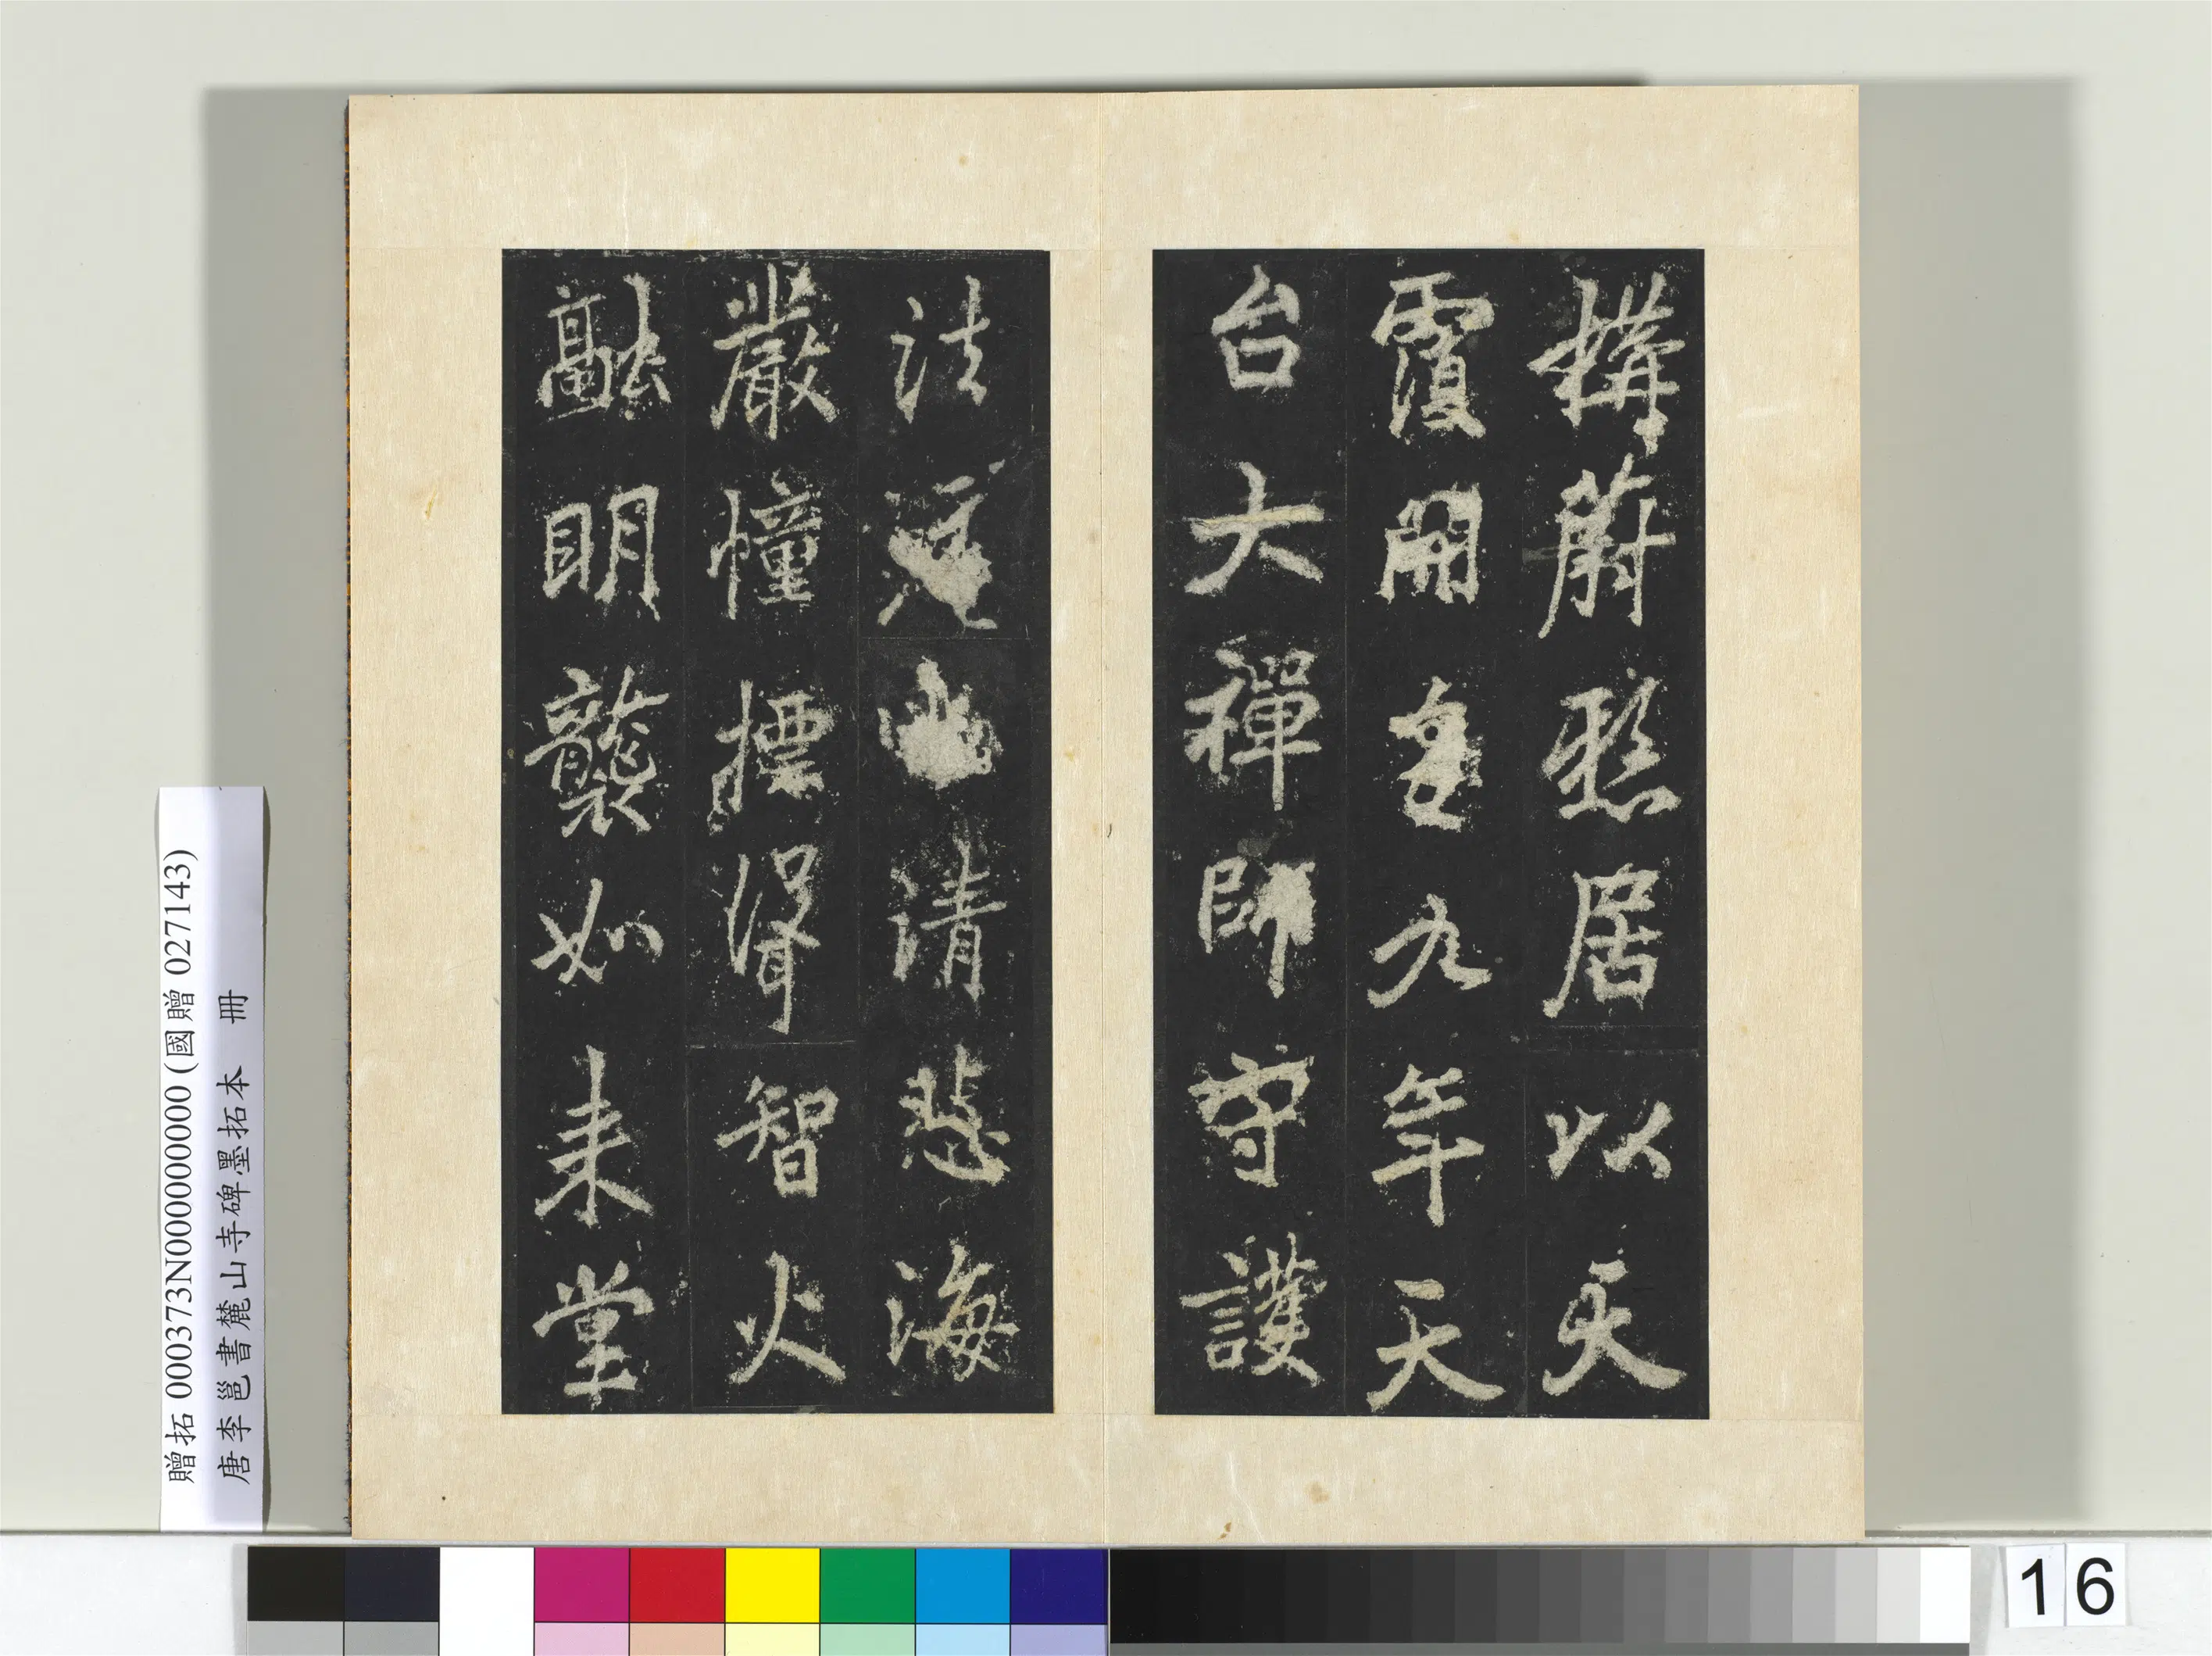 搆蔚居以
覆開皇九年天
台大禪師守護
法清悲海
嚴幢摽聳智火
融明襲如来堂
贈拓 000373N000000000 (國贈 027143)
唐李邕書麓山寺碑墨拓本　冊
16